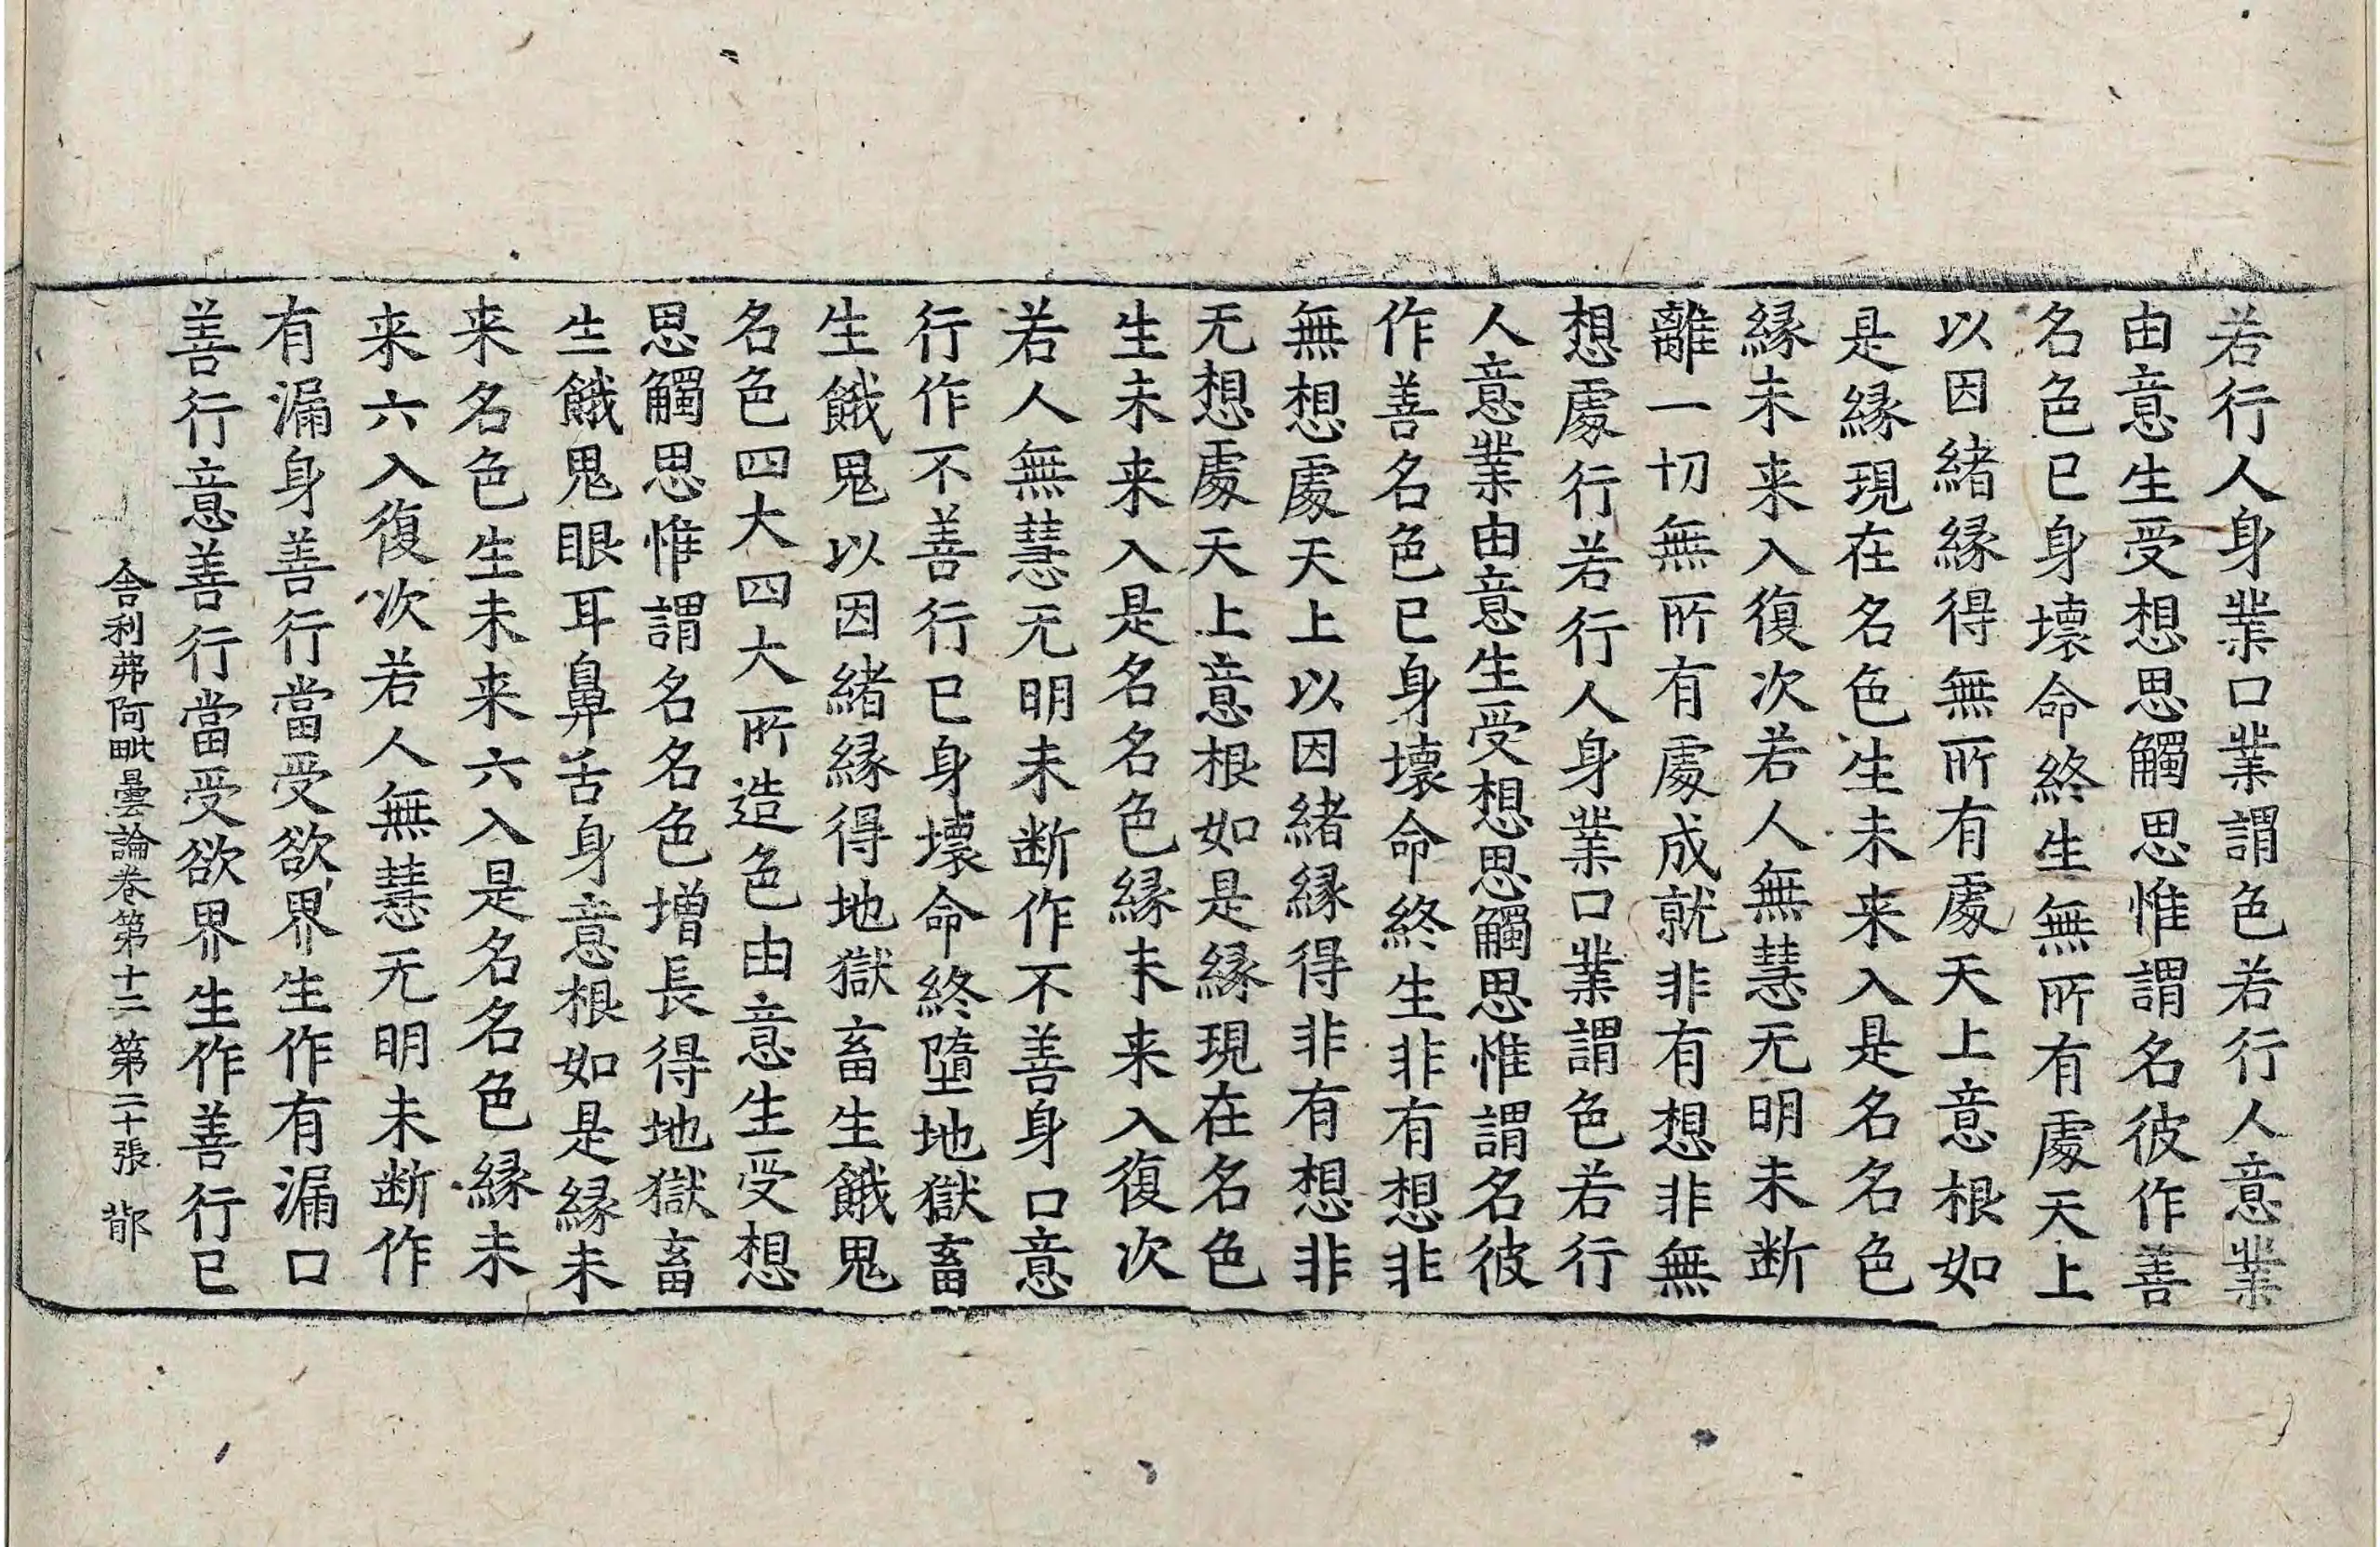 若行人身業口業謂色若行人意業
由意生受想思觸思惟謂名彼作善
名色已身壞命終生無所有處天上
以因緒縁得無所有處天上意根如
是縁現在名色生未来入是名名色
縁未来入復次若人無慧无明未断
離一切無所有處成就非有想非無
想處行若行人身業口業謂色若行
人意業由意生受想思觸思惟謂名彼
作善名色已身壞命終生非有想非
無想處天上以因緒縁得非有想非
无想處天上意根如是縁現在名色
生未来入是名名色縁未来入復次
若人無慧无明未断作不善身口意
行作不善行已身壞命終墮地獄畜
生餓鬼以因緒縁得地獄畜生餓鬼
名色四大四大所造色由意生受想
思觸思惟謂名名色增長得地獄畜
生餓鬼眼耳鼻舌身意根如是縁未
来名色生未来六入是名名色縁未
来六入復次若人無慧无明未断作
有漏身善行當受欲界生作有漏口
善行意善行當受欲界生作善行已
舍利弗阿毗曇論卷第十二 第二十張